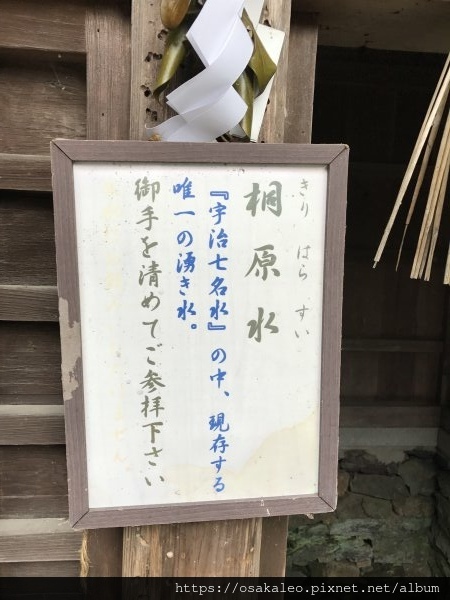 きり はら すい
桐原水
『宇治七名水』の中、現存する
唯一の湧き水。
御手を清めてご参拝下さい
https://osakaleo.pixnet.net/album